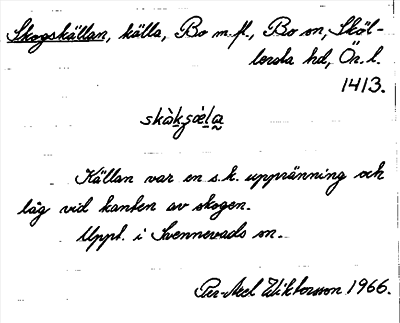 Skogskällan, källa, Bo m.fl., Bo sn, Sköl-
lersta hd, Ör. l.
1413.
skòkʂæ̀la
Källan var en s.k. uppränning och
låg vid kanten av skogen.
Uppt. i Svennevads sn.
Per-Axel Wiktorsson 1966.